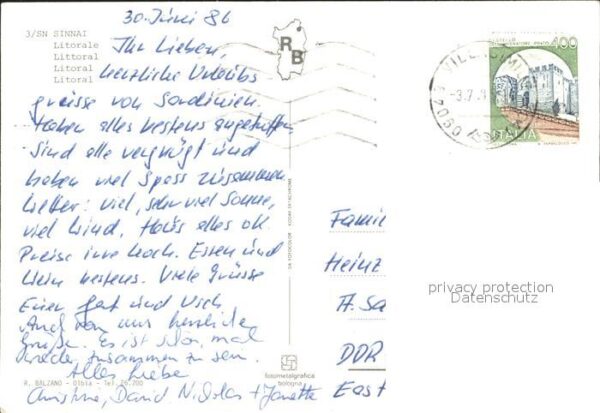 30. Juni 86
3/SN SINNAI
Litorale
Littoral
Littoral
Litoral
Ihr Lieben,
herzliche Urlaubs
grüsse von Sardinien.
Haben alles bestens angetroffen
Sind alle vergnügt und
haben viel Spass zusammen.
Wetter: viel, sehr viel Sonne,
viel Wind, Haus alles ok.
Preise irre hoch. Essen und
Wein bestens. Viele Grüsse
Euer Gert und Usch
Und von uns herzliche
Grüße. Es ist schön, mal
wieder zusammen zu sein.
Alles Liebe
Christine, David, Nikolas + Janette
R. BALZANO - Olbia - Tel. 26.200
RB
fotometalgrafica
bologna
400
ITALIA
-3.7.8
07020
Famil
Heinz
A. Sa
DDR
East
privacy protection
Datenschutz